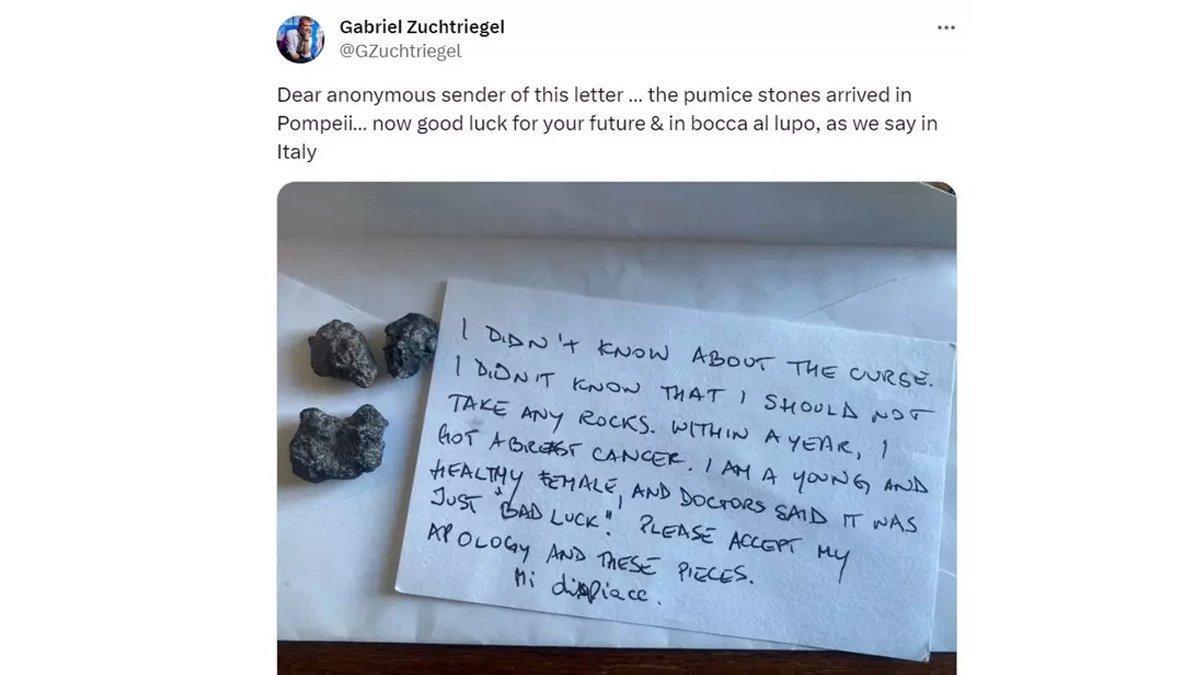 Gabriel Zuchtriegel
@GZuchtriegel
Dear anonymous sender of this letter ... the pumice stones arrived in
Pompeii... now good luck for your future & in bocca al lupo, as we say in
Italy
I DIDN'T KNOW ABOUT THE CURSE.
I DIDN'T KNOW THAT I SHOULD NOT
TAKE ANY ROCKS. WITHIN A YEAR, I
GOT A BREAST CANCER. I AM A YOUNG AND
HEALTHY FEMALE, AND DOCTORS SAID IT WAS
JUST "BAD LUCK". PLEASE ACCEPT MY
APOLOGY AND THESE PIECES.
Mi dispiace.